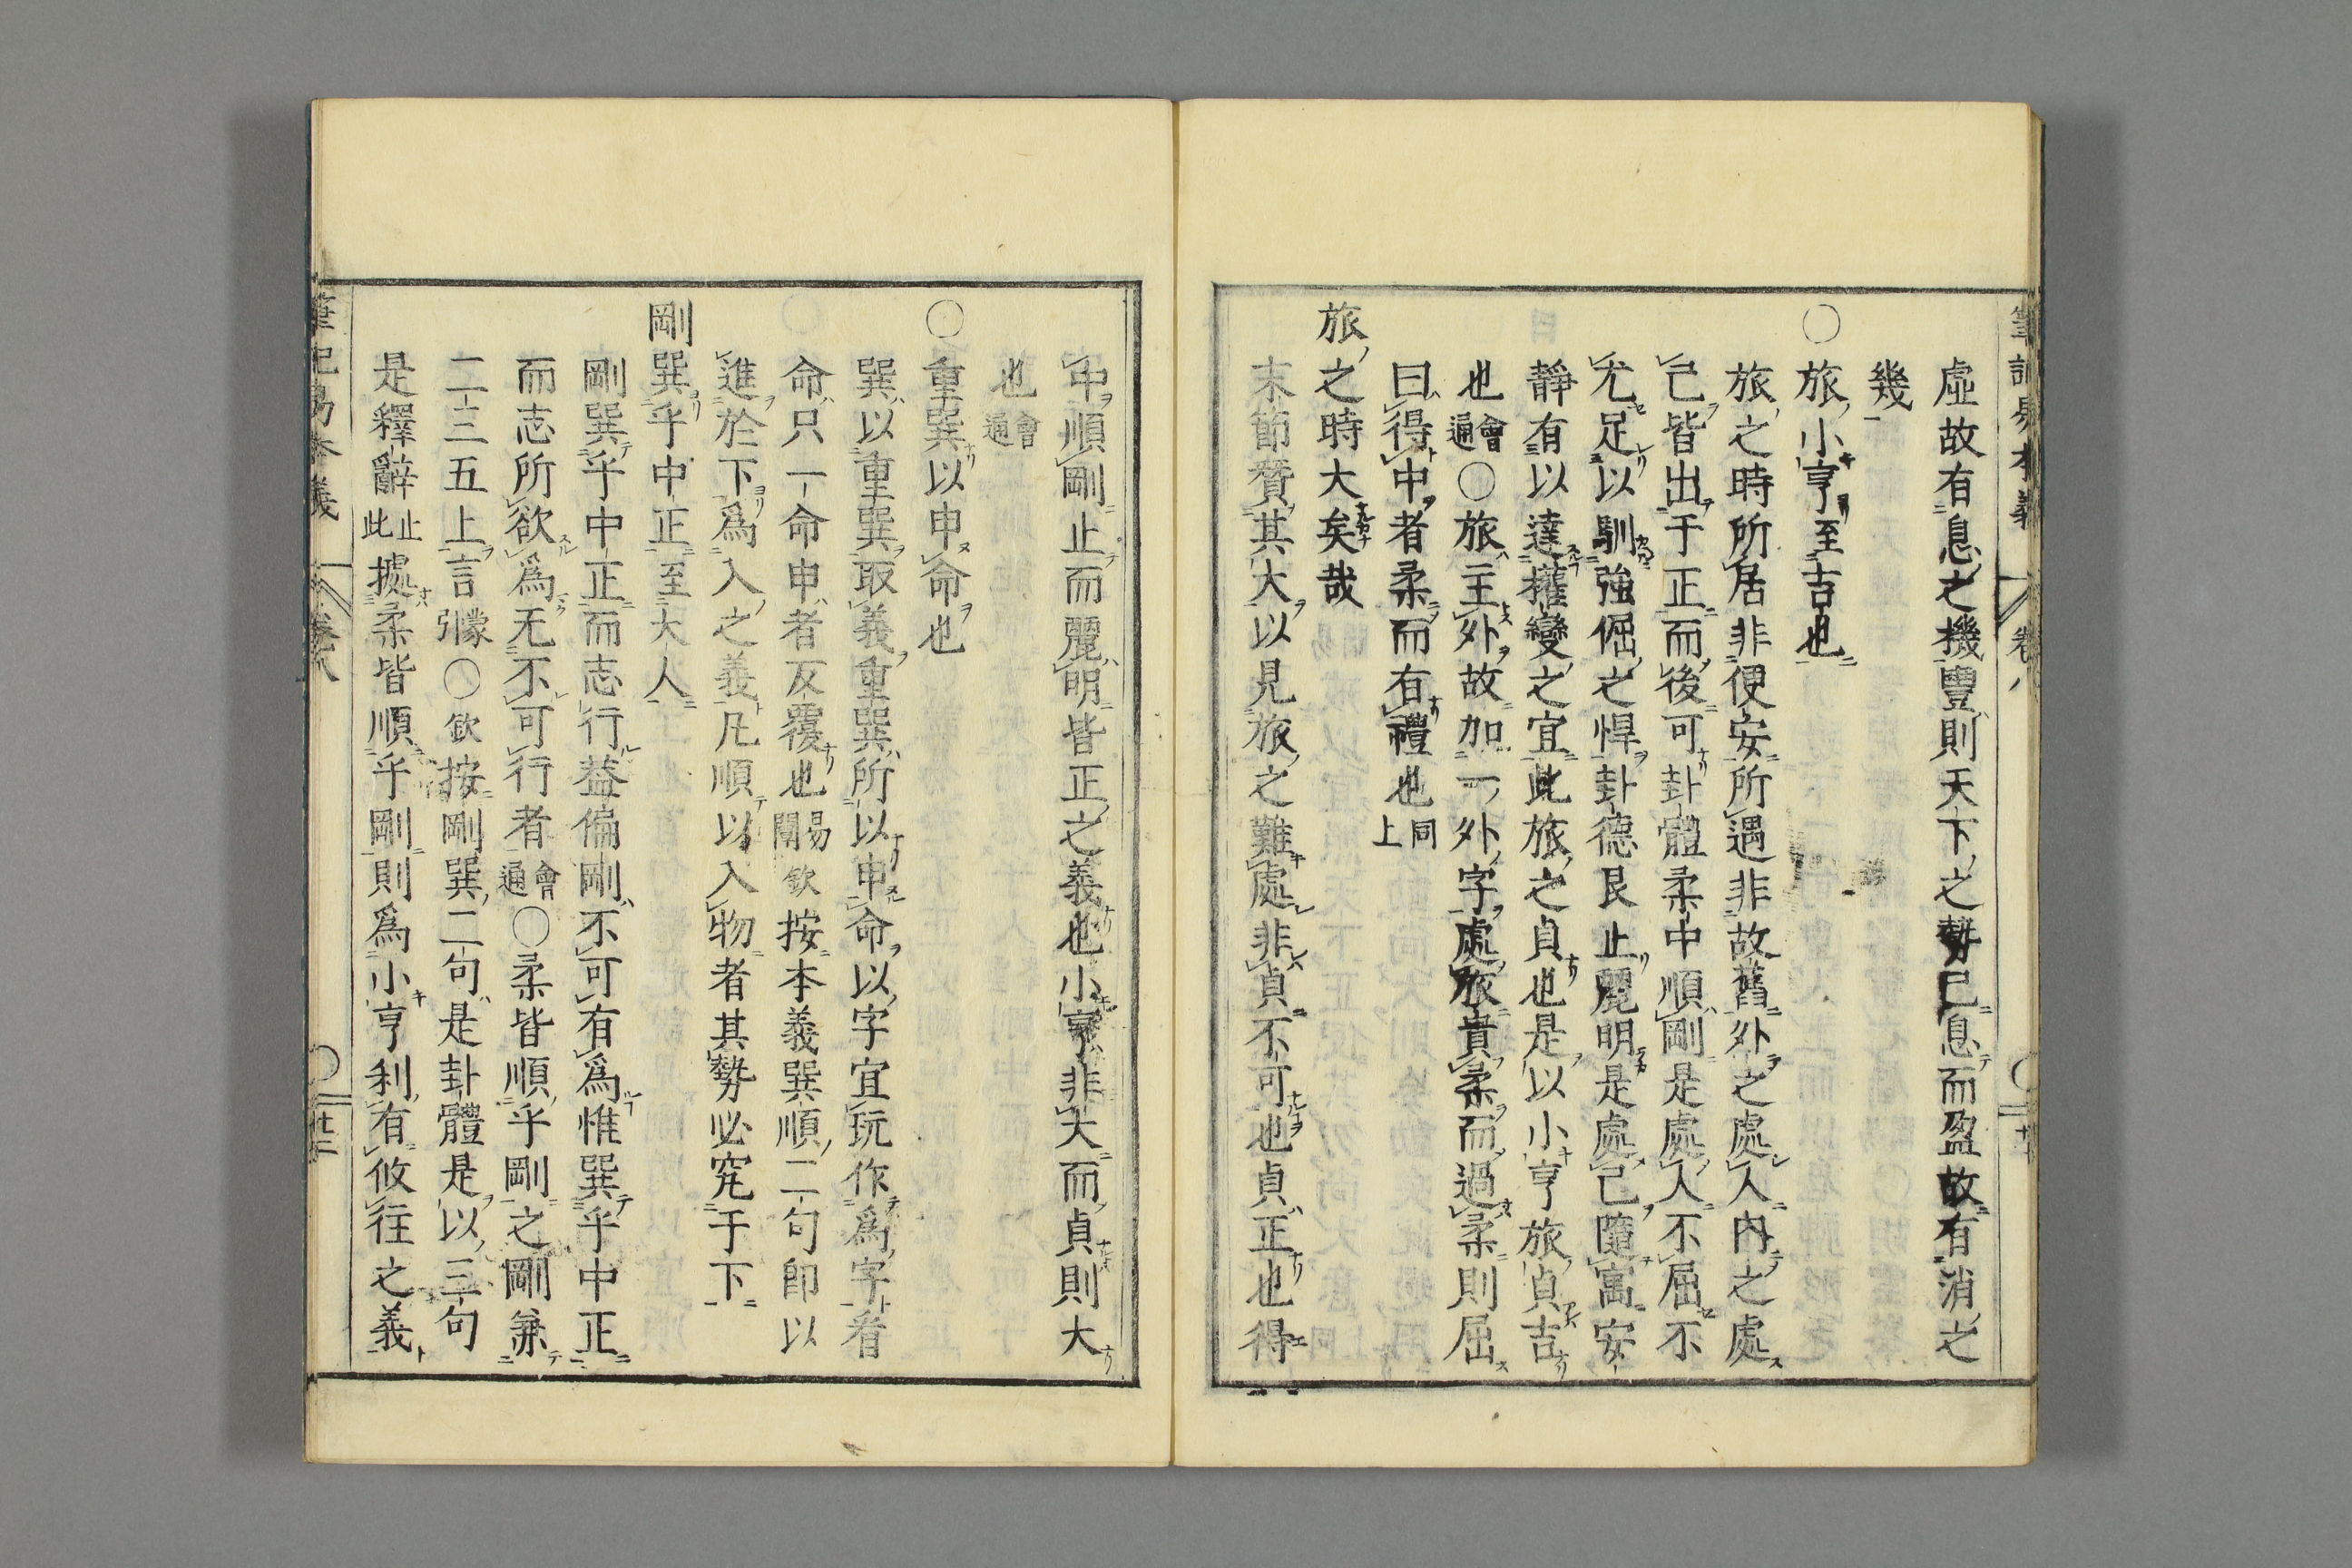 虛故有息之機豐則天下之勢已息而盈故有消之
幾
○旅小亨至吉也
旅之時所居非便安所遇非故舊外之處人內之處
己皆出于正而後可卦體柔中順剛是處人不屈不
尤足以馴強倔之悍卦德艮止麗明是處己隨寓安
靜有以達權變之宜此旅之貞也是以小亨旅貞吉
也會通○旅主外故加一外字處旅貴柔而過柔則屈
曰得中者柔而有禮也同上
旅之時大矣哉
末節贊其大以見旅之難處非貞不可也貞正也得
中順剛止而麗明皆正之義也小亨非大而貞則大
也會通
○重巽以申命也
巽以重巽取義重巽所以申命以字宜玩作爲字看
命只一命申者反覆也易闡欽按本義巽順二句即以
進於下爲入之義凡順以入物者其勢必究于下
剛巽乎中正至大人
剛巽乎中正而志行益偏剛不可有爲惟巽乎中正
而志所欲爲无不可行者會通○柔皆順乎剛之剛兼
二三五上言蒙引○欽按剛巽二句是卦體是以三句
是釋辭止此據柔皆順乎剛則爲小亨利有攸往之義
筆記易本義 卷八 廿二